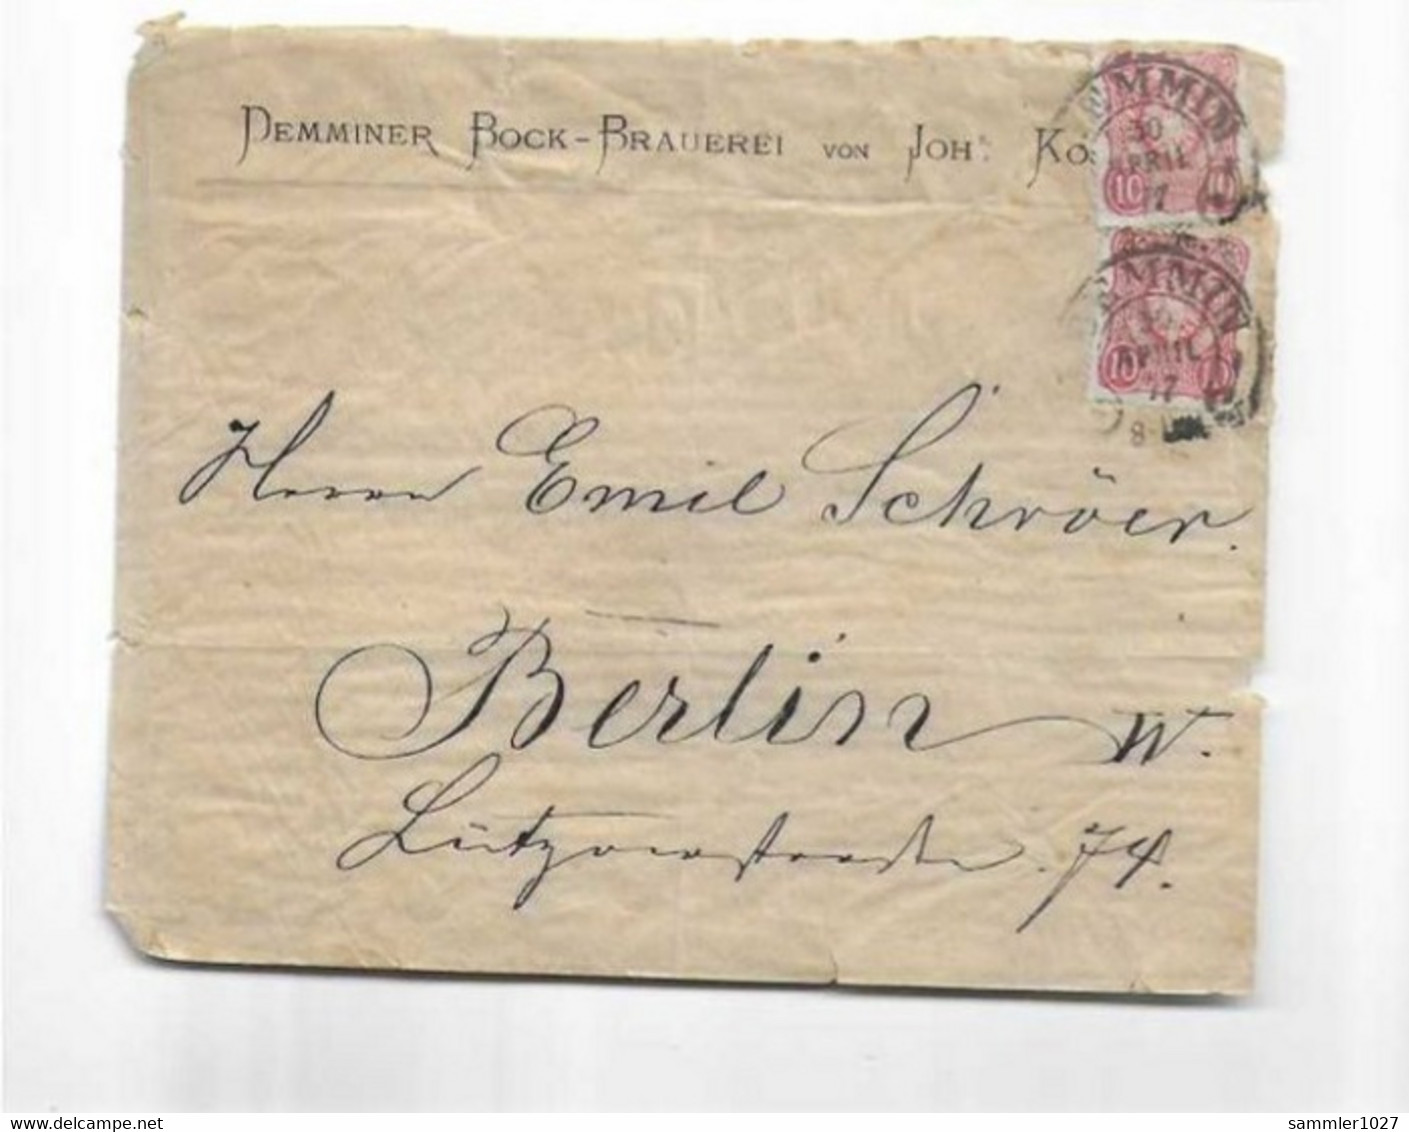 DEMMINER BOCK-BRAUEREI VON JOH˚. KÖ
EMMIN
30
APRIL
77
10 10
EMMIN
30
APRIL
77
10 10
8
Herrn Emil Schröer.
Berlin W.
Lützowstraße. 74.
sammler1027